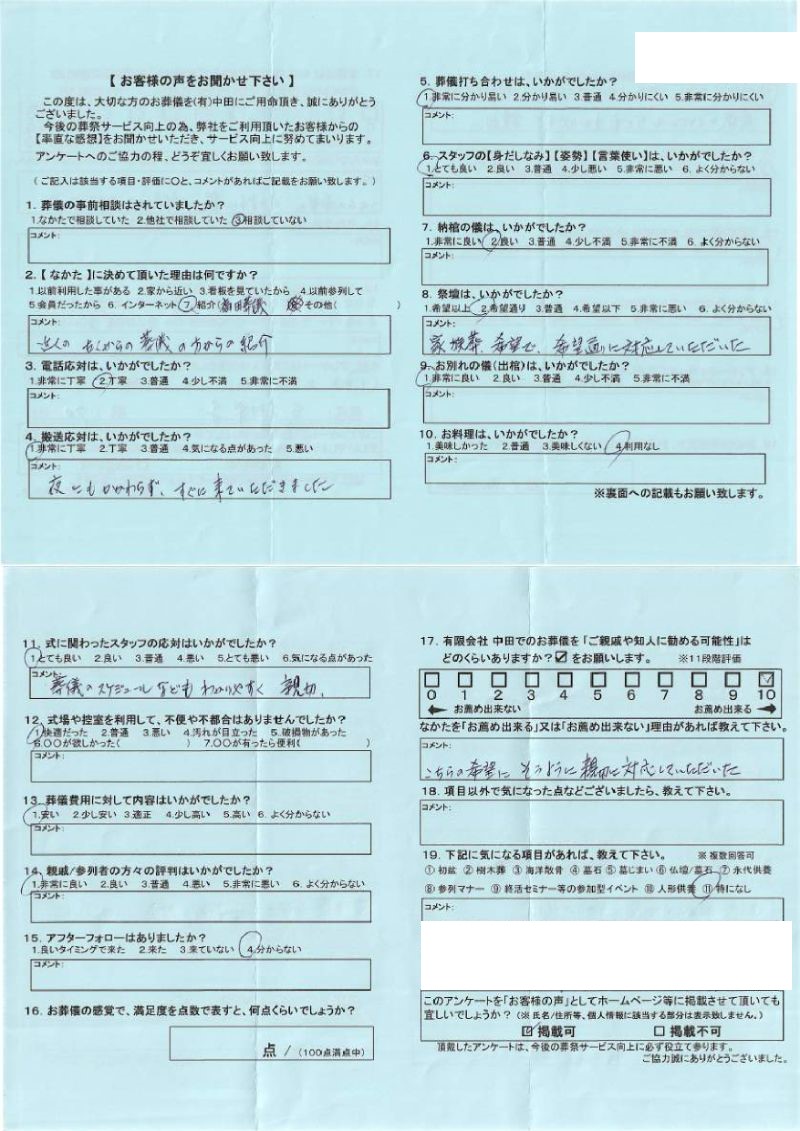 【 お客様の声をお聞かせ下さい 】
この度は、大切な方のお葬儀を(有)中田にご用命頂き、誠にありがとう
ございました。
今後の葬祭サービス向上の為、弊社をご利用頂いたお客様からの
【率直な感想】をお聞かせいただき、サービス向上に努めてまいります。
アンケートへのご協力の程、どうぞ宜しくお願い致します。
（ご記入は該当する項目・評価に○と、コメントがあればご記載をお願い致します。）
1. 葬儀の事前相談はされていましたか？
1.なかたで相談していた 2.他社で相談していた 3.相談していない
コメント:
2.【 なかた 】に決めて頂いた理由は何ですか？
1.以前利用した事がある 2.家から近い 3.看板を見ていたから 4.以前参列して
5.会員だったから 6. インターネット 7.紹介( 葬儀 その他( )
コメント:
近くの 葬儀の方からの紹介
3. 電話応対は、いかがでしたか？
1.非常に丁寧 2.丁寧 3.普通 4.少し不満 5.非常に不満
コメント:
4. 搬送応対は、いかがでしたか？
1.非常に丁寧 2.丁寧 3.普通 4.気になる点があった 5.悪い
コメント:
夜にもかかわらず、すぐに来ていただきました
5. 葬儀打ち合わせは、いかがでしたか？
1.非常に分かり易い 2.分かり易い 3.普通 4.分かりにくい 5.非常に分かりにくい
コメント:
6. スタッフの【身だしなみ】【姿勢】【言葉使い】は、いかがでしたか？
1.とても良い 2.良い 3.普通 4.少し悪い 5.非常に悪い 6. よく分からない
コメント:
7. 納棺の儀は、いかがでしたか？
1.非常に良い 2.良い 3.普通 4.少し不満 5.非常に不満 6. よく分からない
コメント:
8. 祭壇は、いかがでしたか？
1.希望以上 2.希望通り 3.普通 4.希望以下 5.非常に悪い 6. よく分からない
コメント:
家族葬 希望で、希望通りに対応していただいた
9. お別れの儀(出棺)は、いかがでしたか？
1.非常に良い 2.良い 3.普通 4.少し不満 5.非常に不満
コメント:
10. お料理は、いかがでしたか？
1.美味しかった 2.普通 3.美味しくない 4.利用なし
コメント:
※裏面への記載もお願い致します。
11. 式に関わったスタッフの応対はいかがでしたか？
1.とても良い 2.良い 3.普通 4.悪い 5.とても悪い 6.気になる点があった
コメント:
葬儀のスケジュールなどもわかりやすく 親切、
12. 式場や控室を利用して、不便や不都合はありませんでしたか？
1.快適だった 2.普通 3.悪い 4.汚れが目立った 5.破損物があった
6.○○が欲しかった( ) 7.○○が有ったら便利( )
コメント:
13. 葬儀費用に対して内容はいかがでしたか？
1.安い 2.少し安い 3.適正 4.少し高い 5.高い 6. よく分からない
コメント:
14. 親戚/参列者の方々の評判はいかがでしたか？
1.非常に良い 2.良い 3.普通 4.悪い 5.非常に悪い 6. よく分からない
コメント:
15. アフターフォローはありましたか？
1.良いタイミングで来た 2.来た 3.来ていない 4.分からない
コメント:
16. お葬儀の感覚で、満足度を点数で表すと、何点くらいでしょうか？
点 / (100点満点中)
17. 有限会社 中田でのお葬儀を「ご親戚や知人に勧める可能性」は
どのくらいありますか？☑ をお願いします。 ※11段階評価
0 1 2 3 4 5 6 7 8 9 10
お薦め出来ない お薦め出来る
なかたを「お薦め出来る」又は「お薦め出来ない」理由があれば教えて下さい。
コメント:
こちらの希望にそうように親切に対応していただいた
18. 項目以外で気になった点などございましたら、教えて下さい。
コメント:
19. 下記に気になる項目があれば、教えて下さい。 ※ 複数回答可
① 初盆 ② 樹木葬 ③ 海洋散骨 ④ 墓石 ⑤ 墓じまい ⑥ 仏壇/墓石 ⑦ 永代供養
⑧ 参列マナー ⑨ 終活セミナー等の参加型イベント ⑩ 人形供養 ⑪ 特になし
コメント:
このアンケートを「お客様の声」としてホームページ等に掲載させて頂いても
宜しいでしょうか？（※ 氏名/住所等、個人情報に該当する部分は表示致しません。）
☑ 掲載可 □ 掲載不可
頂戴したアンケートは、今後の葬祭サービス向上に必ず役立て参ります。
ご協力誠にありがとうございました。